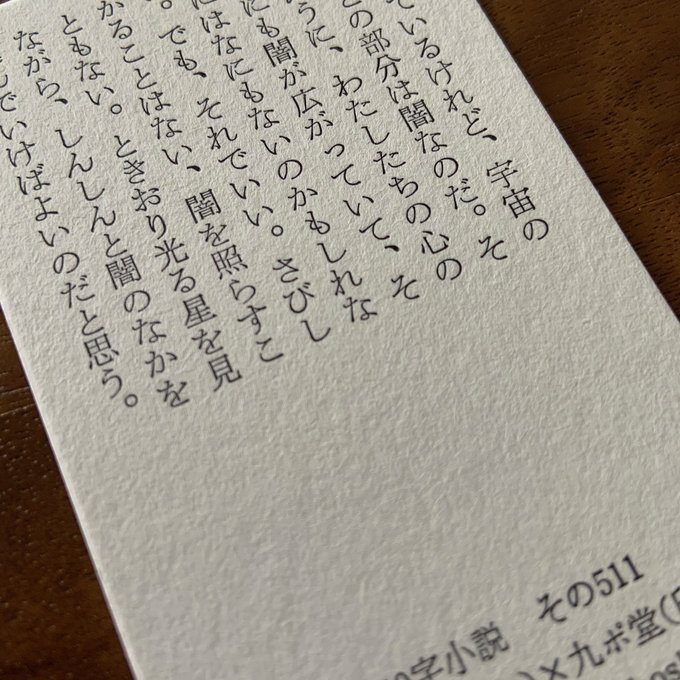 ているけれど、宇宙の
の部分は闇なのだ。そ
うに、わたしたちの心の
にも闇が広がっていて、そ
にはなにもないのかもしれな
。でも、それでいい。さびし
がることはない、闇を照らすこ
ともない。ときおり光る星を見
ながら、しんしんと闇のなかを
でいけばよいのだと思う。
字小説　その511
)×九ポ堂(